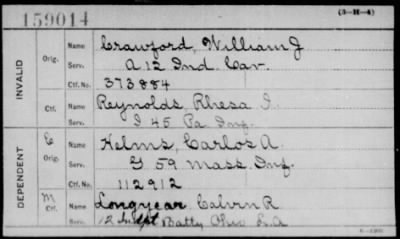 159014
(3-H-4)
INVALID
Orig.
Name Crawford, William J
Serv. A 12 Ind. Cav.
Ctf. No. 373884
Ctf.
Name Reynolds, Rhesa I.
Serv. I 45 Pa Inf.
DEPENDENT
C
Orig.
Name Helms, Carlos A.
Serv. G 59 Mass. Inf.
Ctf. No. 112912
M
Ctf.
Name Longyear, Calvin R
Serv. 12 Batty Ohio L.A